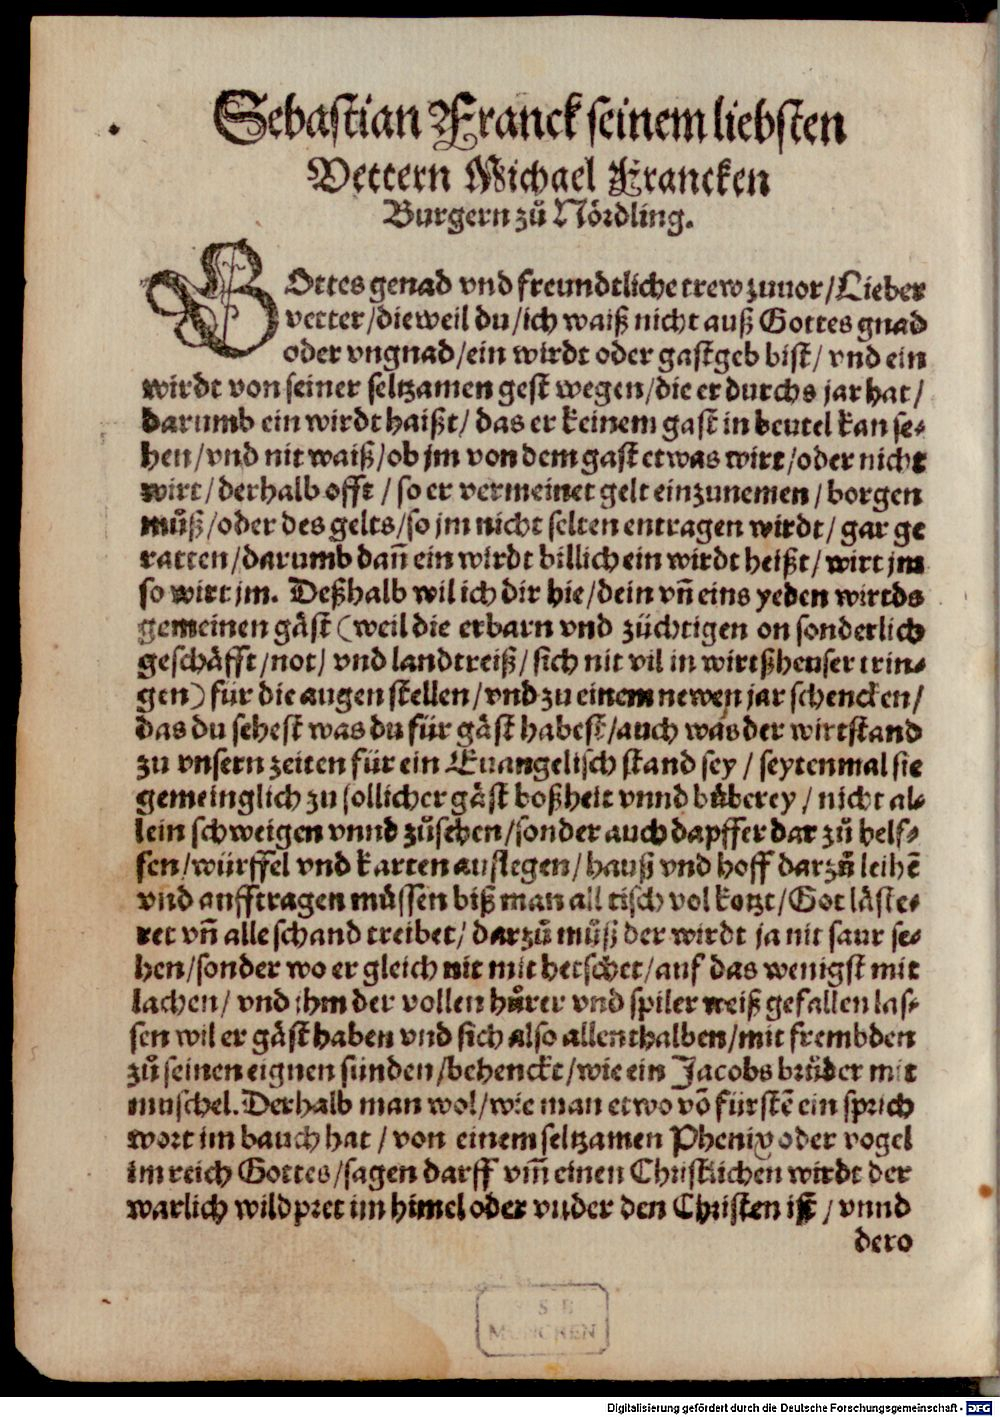 Sebastian Franck seinem liebsten
Vettern Michael Francken
Burgern zů Nördling.
GOttes genad vnd freundtliche trew zuuor/Lieber
vetter/dieweil du/ich waiß nicht auß Gottes gnad
oder vngnad/ein wirdt oder gastgeb bist/ vnd ein
wirdt von seiner seltzamen gest wegen/die er durchs jar hat/
darumb ein wirdt haißt/ das er keinem gast in beutel kan se⸗
hen/vnd nit waiß/ob jm von dem gast etwas wirt/oder nicht
wirt/derhalb offt/so er vermeinet gelt einzunemen/borgen
můß/oder des gelts/so jm nicht selten entragen wirdt/gar ge
ratten/darumb dañ ein wirdt billich ein wirdt heißt/wirt jm
so wirt jm. Deßhalb wil ich dir hie/dein vñ eins yeden wirtds
gemeinen gäst (weil die erbarn vnd züchtigen on sonderlich
geschäfft/not/ vnd landtreiß/sich nit vil in wirtßheuser trin⸗
gen) für die augen stellen/vnd zu einem newen jar schencken/
das du sehest was du für gäst habest/auch was der wirtstand
zu vnsern zeiten für ein Euangelisch stand sey/seytenmal sie
gemeinglich zu sollicher gäst boßheit vnnd bůberey/nicht al⸗
lein schweigen vnnd zůsehen/sonder auch dapffer dar zů helf⸗
fen/würffel vnd karten auflegen/hauß vnd hoff darzů leihē
vnd aufftragen müssen biß man all tisch vol kotzt/Got läste⸗
ret vñ alle schand treibet/darzů můß der wirdt ja nit saur se⸗
hen/sonder wo er gleich nit mit hetschet/auf das wenigst mit
lachen/vnd ihm der vollen hůrer vnd spiler weiß gefallen las⸗
sen wil er gäst haben vnd sich also allenthalben/mit frembden
zů seinen eignen sünden/behenckt/wie ein Jacobs brůder mit
muschel. Derhalb man wol/wie man etwo vō fürstē ein sprich
wort im bauch hat/von einem seltzamen Phenix oder vogel
im reich Gottes/sagen darff vm̃ einen Christlichen wirdt der
warlich wildpret im himel oder vnder den Christen ist/vnnd
dero
S B
MÜNCHEN
Digitalisierung gefördert durch die Deutsche Forschungsgemeinschaft - DFG